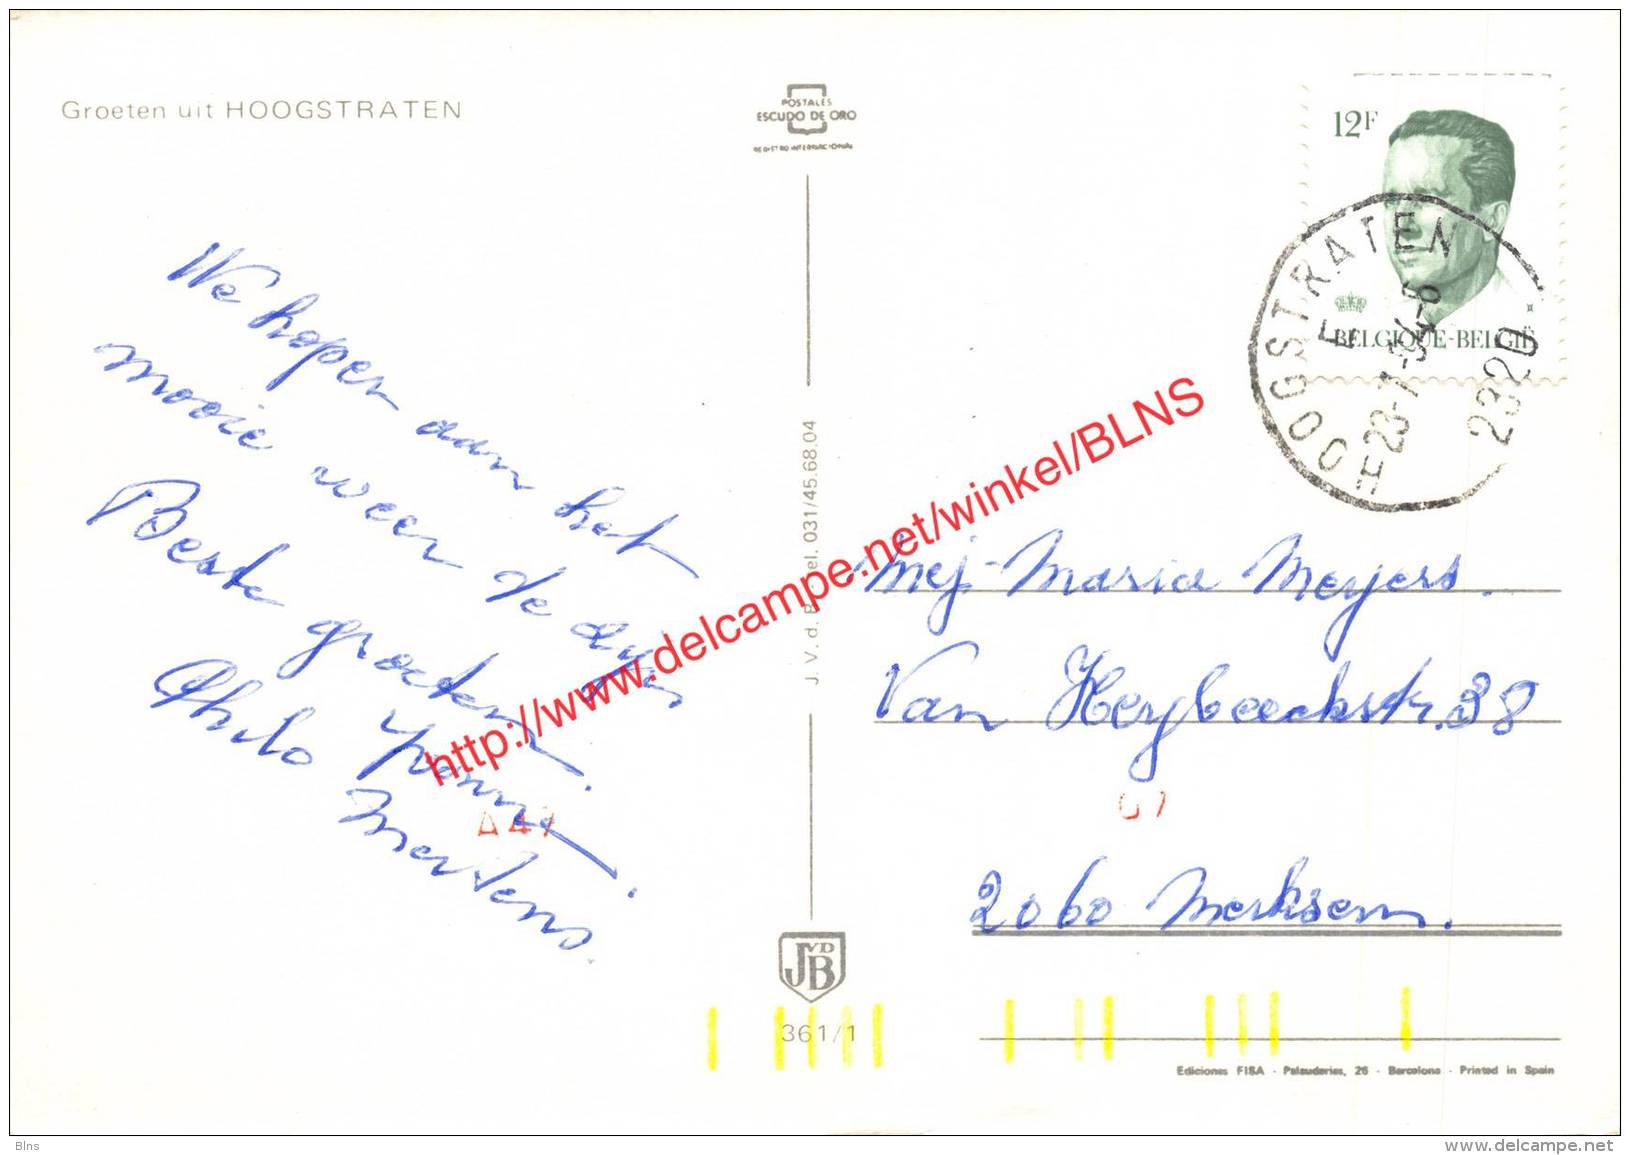 Groeten uit HOOGSTRATEN
POSTALES
ESCUDO DE ORO
REGISTRO INTERNACIONAL
12F
BELGIQUE-BELGIË
HOOGSTRATEN
23-7-
2320
We hopen aan het
mooie weer de
Beste groeten.
Philo Yvonne.
Mertens.
J. V. d. B. - Tel. 031/45.68.04
Mej. Maria Meyers.
Van Heybeeckstr. 38
A 41
2060 Merksem.
JVDB
361/1
Ediciones FISA - Palaudarias, 26 - Barcelona - Printed in Spain
http://www.delcampe.net/winkel/BLNS
Blns
www.delcampe.net